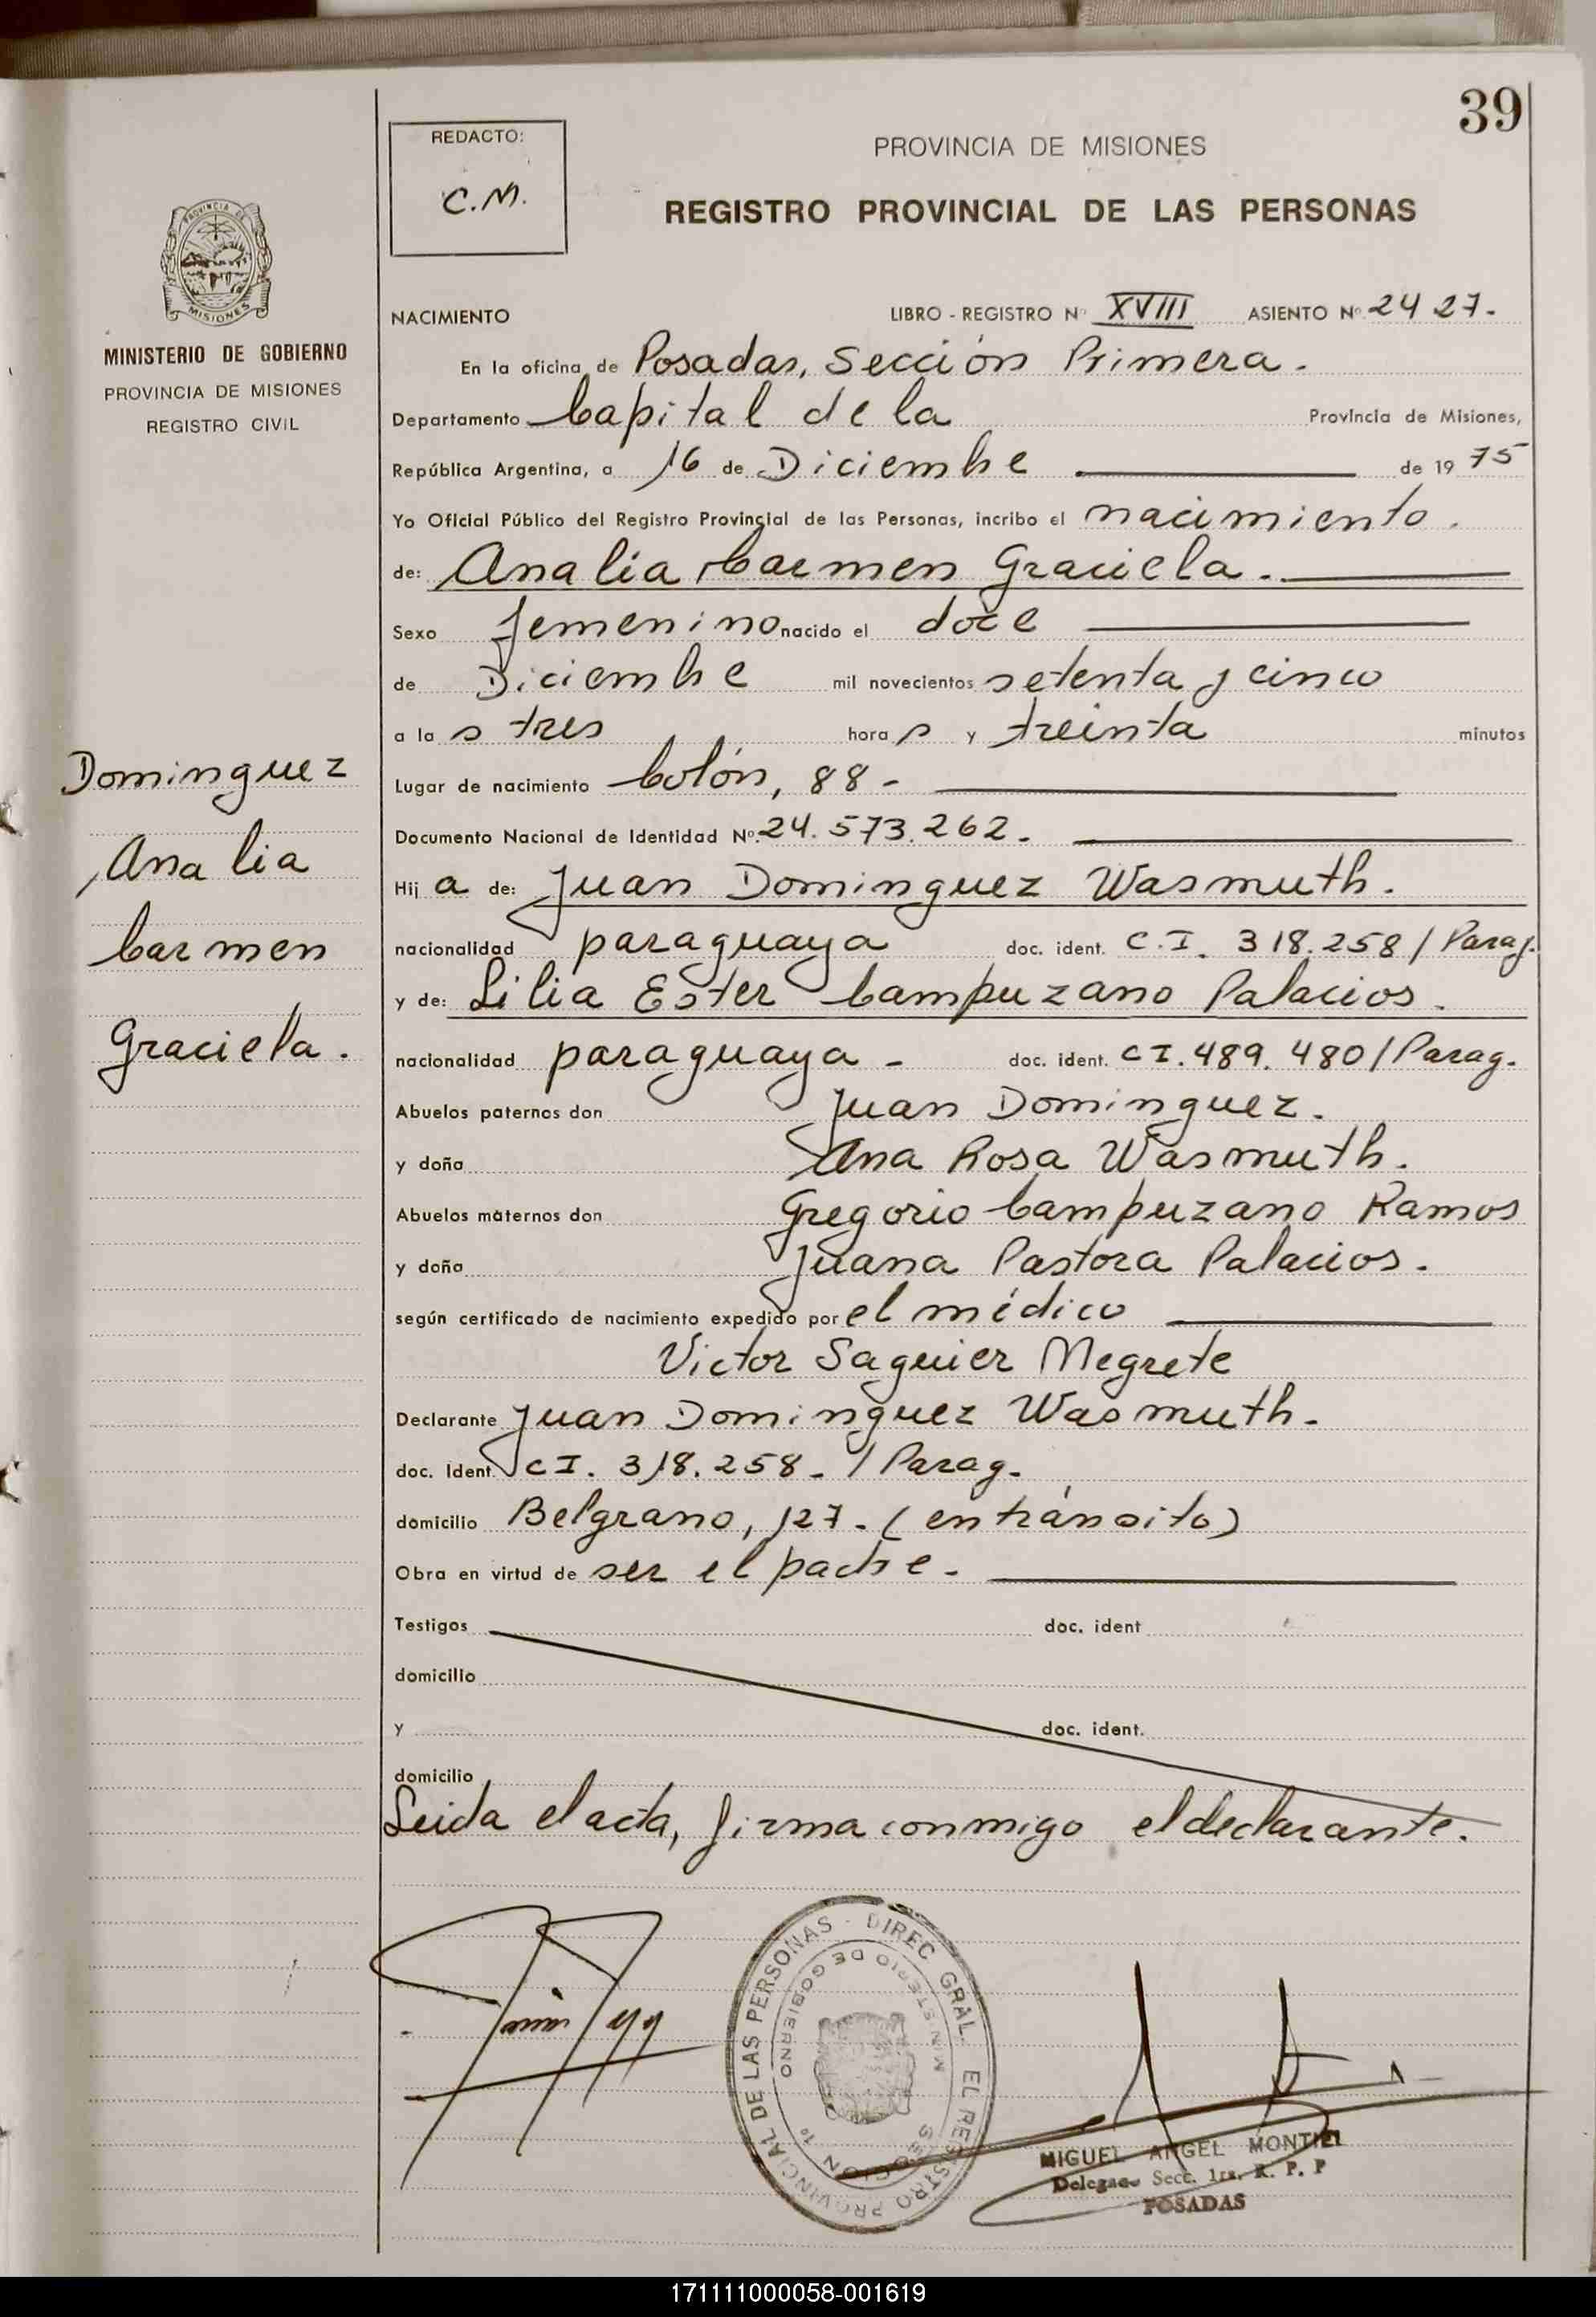 39
REDACTO:
C.M.
PROVINCIA DE MISIONES
REGISTRO PROVINCIAL DE LAS PERSONAS
PROVINCIA DE
MISIONES
MINISTERIO DE GOBIERNO
PROVINCIA DE MISIONES
REGISTRO CIVIL
NACIMIENTO LIBRO - REGISTRO Nº XVIII ASIENTO Nº 2427.
En la oficina de Posadas, Sección Primera.
Departamento Capital de la Provincia de Misiones,
República Argentina, a 16 de Diciembre de 1975
Yo Oficial Público del Registro Provincial de las Personas, incribo el nacimiento.
de: Analia Carmen Graciela.
Sexo femenino nacido el doce
de Diciembre mil novecientos setenta y cinco
a la s tres hora s y treinta minutos
Lugar de nacimiento Colón, 88-
Documento Nacional de Identidad Nº 24.573.262.
Hij a de: Juan Dominguez Wasmuth.
nacionalidad paraguaya doc. ident. C.I. 318.258/Parag.
y de: Lilia Ester Campuzano Palacios.
nacionalidad paraguaya - doc. ident. CI.489.480/Parag.
Abuelos paternos don Juan Dominguez.
y doña Ana Rosa Wasmuth.
Abuelos maternos don Gregorio Campuzano Ramos
y doña Juana Pastora Palacios.
según certificado de nacimiento expedido por el médico
Victor Saguier Negrete
Declarante Juan Dominguez Wasmuth.
doc. Ident. CI. 318.258. / Parag.
domicilio Belgrano, 127. (en tránsito)
Obra en virtud de ser el padre.
Testigos doc. ident
domicilio
y doc. ident.
domicilio
Leida el acta, firma conmigo el declarante.
Dominguez
Analia
Carmen
Graciela.
DIREC. GRAL. EL REGISTRO PROVINCIAL DE LAS PERSONAS
MINISTERIO DE GOBIERNO
SECCION 1º
MIGUEL ANGEL MONTIEL
Delegado Secc. 1ra. R. P. P
POSADAS
171111000058-001619